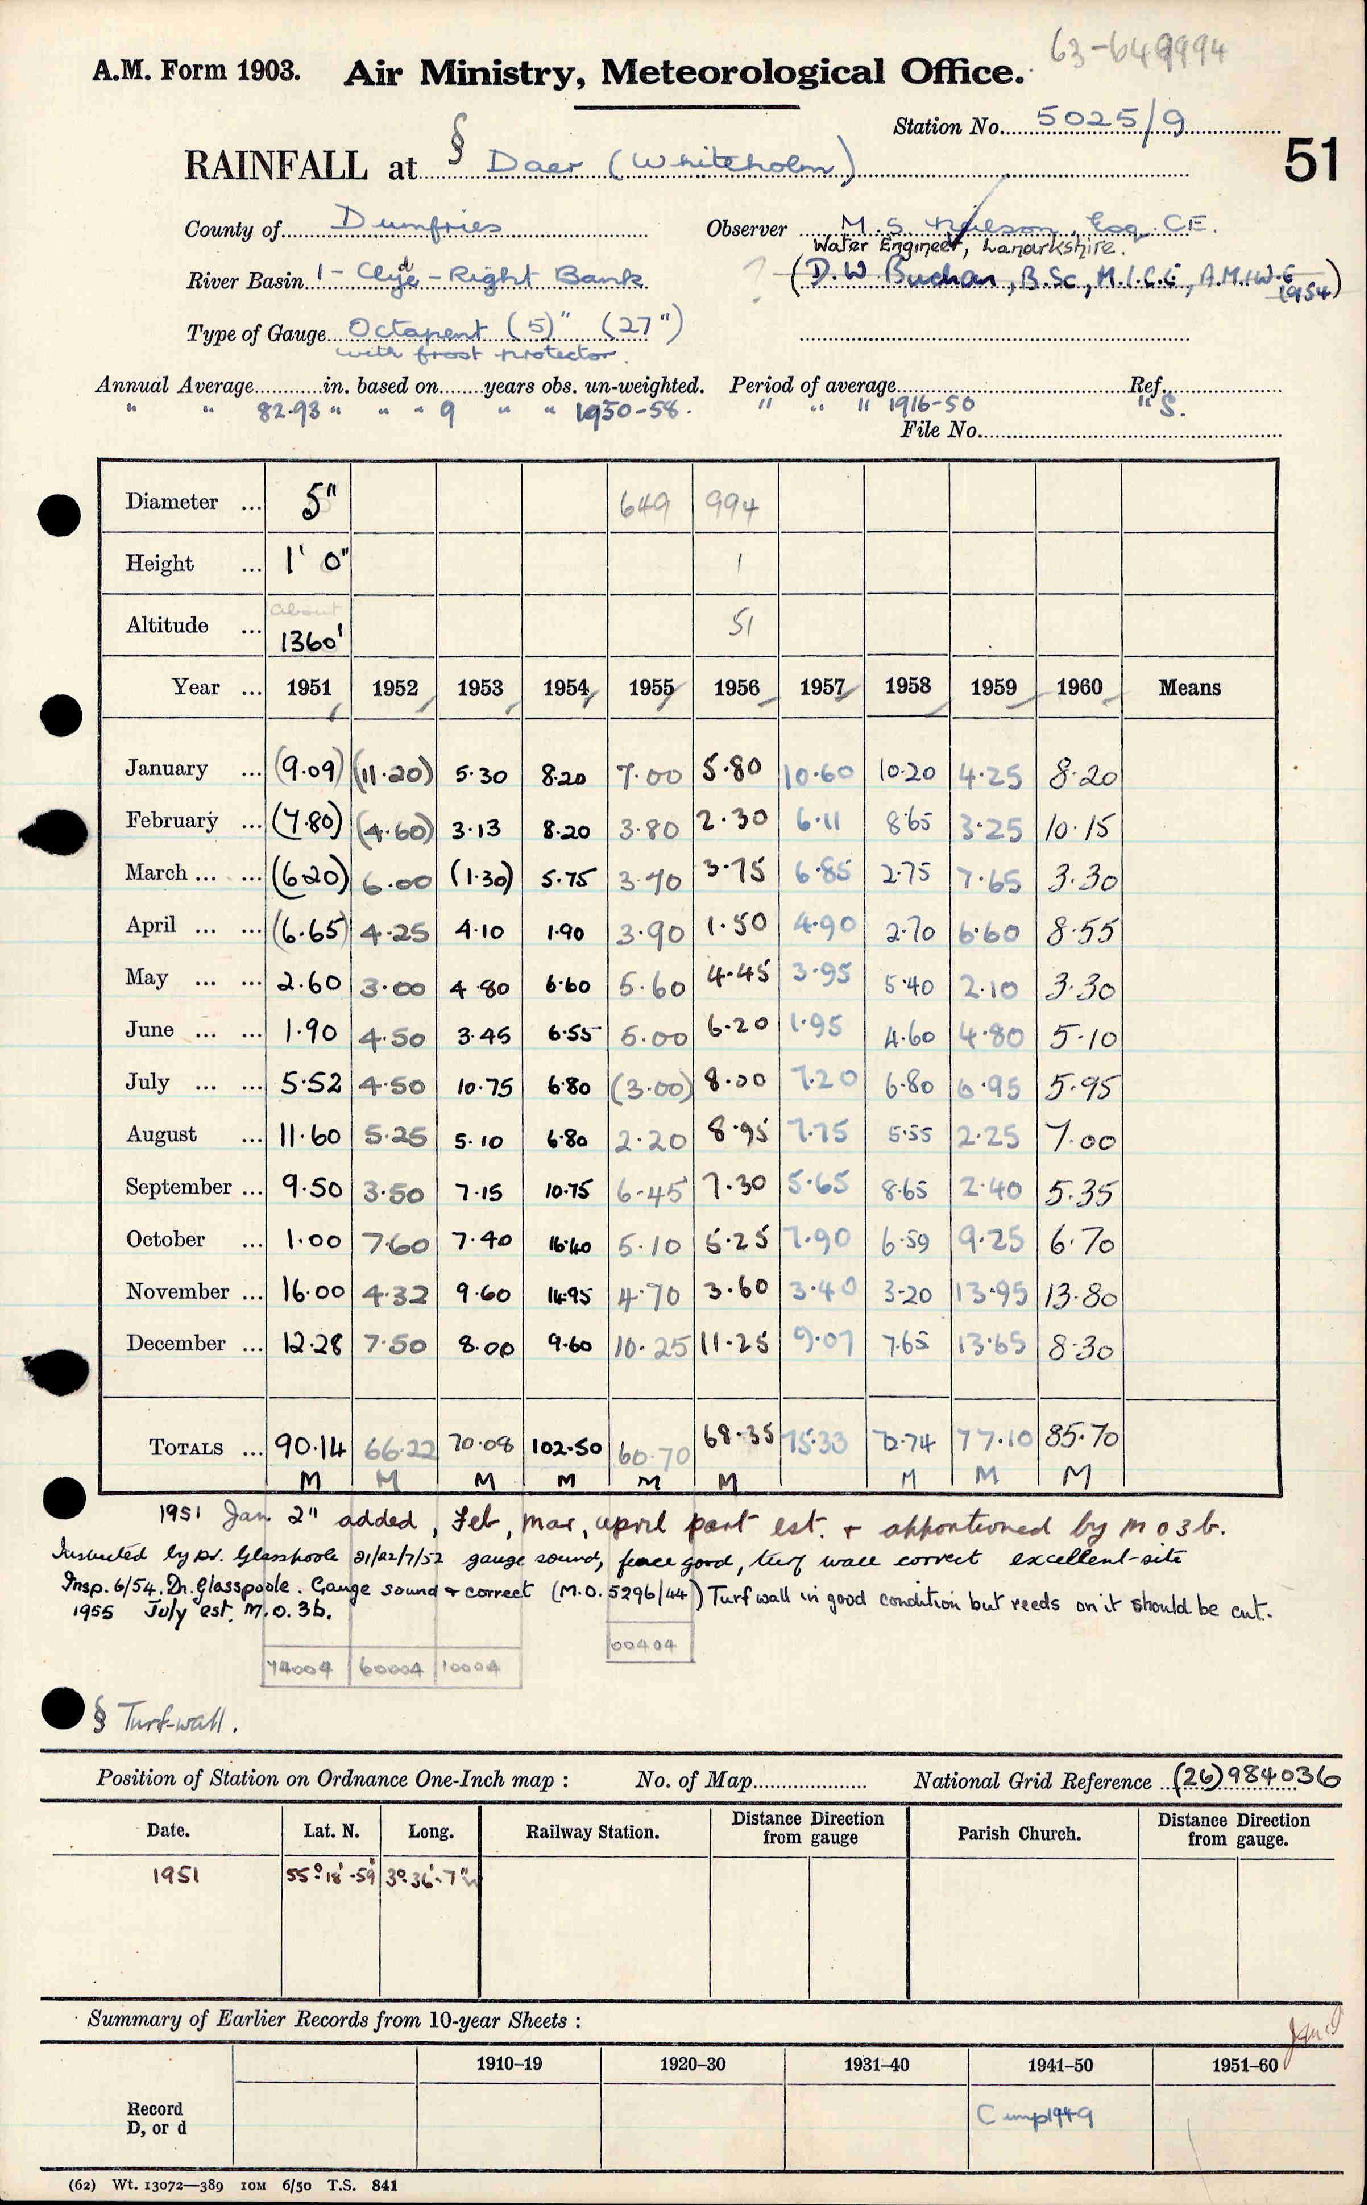 63-649994
A.M. Form 1903. Air Ministry, Meteorological Office.
Station No. 5025/9
51
RAINFALL at § Daer (Whiteholm)
County of Dumfries Observer M. S. Neilson, Esq. C.E.
Water Engineer, Lanarkshire.
River Basin 1 - Clyde - Right Bank ? (D. W. Buchan, B.Sc, M.I.C.E, A.M.I.W.E 1954)
Type of Gauge Octapent (5)" (27")
with frost protector.
Annual Average in. based on years obs. un-weighted. Period of average Ref.
" " 82.93 " " " 9 " " 1950-58. " " " 1916-50 " S.
File No.
Diameter ... 5" 649 994
Height ... 1' 0" 1
about
Altitude ... 1360' 51
Year ... 1951 1952 1953 1954 1955 1956 1957 1958 1959 1960 Means
January ... (9.09) (11.20) 5.30 8.20 7.00 5.80 10.60 10.20 4.25 8.20
February ... (7.80) (4.60) 3.13 8.20 3.80 2.30 6.11 8.65 3.25 10.15
March ... ... (6.20) 6.00 (1.30) 5.75 3.70 3.75 6.85 2.75 7.65 3.30
April ... ... (6.65) 4.25 4.10 1.90 3.90 1.50 4.90 2.70 6.60 8.55
May ... ... 2.60 3.00 4.80 6.60 5.60 4.45 3.95 5.40 2.10 3.30
June ... ... 1.90 4.50 3.45 6.55 5.00 6.20 1.95 4.60 4.80 5.10
July ... ... 5.52 4.50 10.75 6.80 (3.00) 8.00 7.20 6.80 6.95 5.95
August ... 11.60 5.25 5.10 6.80 2.20 8.95 7.75 5.55 2.25 7.00
September ... 9.50 3.50 7.15 10.75 6.45 7.30 5.65 8.65 2.40 5.35
October ... 1.00 7.60 7.40 16.40 5.10 5.25 7.90 6.59 9.25 6.70
November ... 16.00 4.32 9.60 14.95 4.70 3.60 3.40 3.20 13.95 13.80
December ... 12.28 7.50 8.00 9.60 10.25 11.25 9.07 7.65 13.65 8.30
TOTALS ... 90.14 66.22 70.08 102.50 60.70 68.35 75.33 72.74 77.10 85.70
M M M M M M M M M
1951 Jan 2" added, Feb, Mar, april part est. & apportioned by M O 3b.
Inspected by Dr. Glasspoole 21/22/7/52 gauge sound, fence good, turf wall correct excellent site
Insp. 6/54. Dr. Glasspoole. Gauge sound & correct (M.O. 5296/44) Turf wall in good condition but reeds on it should be cut.
1955 July est. M.O.3b.
00404
74004 60004 10004
§ Turf-wall.
Position of Station on Ordnance One-Inch map : No. of Map National Grid Reference (26)984036
Date. Lat. N. Long. Railway Station. Distance Direction from gauge Parish Church. Distance Direction from gauge.
1951 55° 18' -59" 3° 36'-7"W
Summary of Earlier Records from 10-year Sheets :
1910–19 1920–30 1931–40 1941–50 1951–60
Record
D, or d
(62) Wt. 13072—389 10M 6/50 T.S. 841